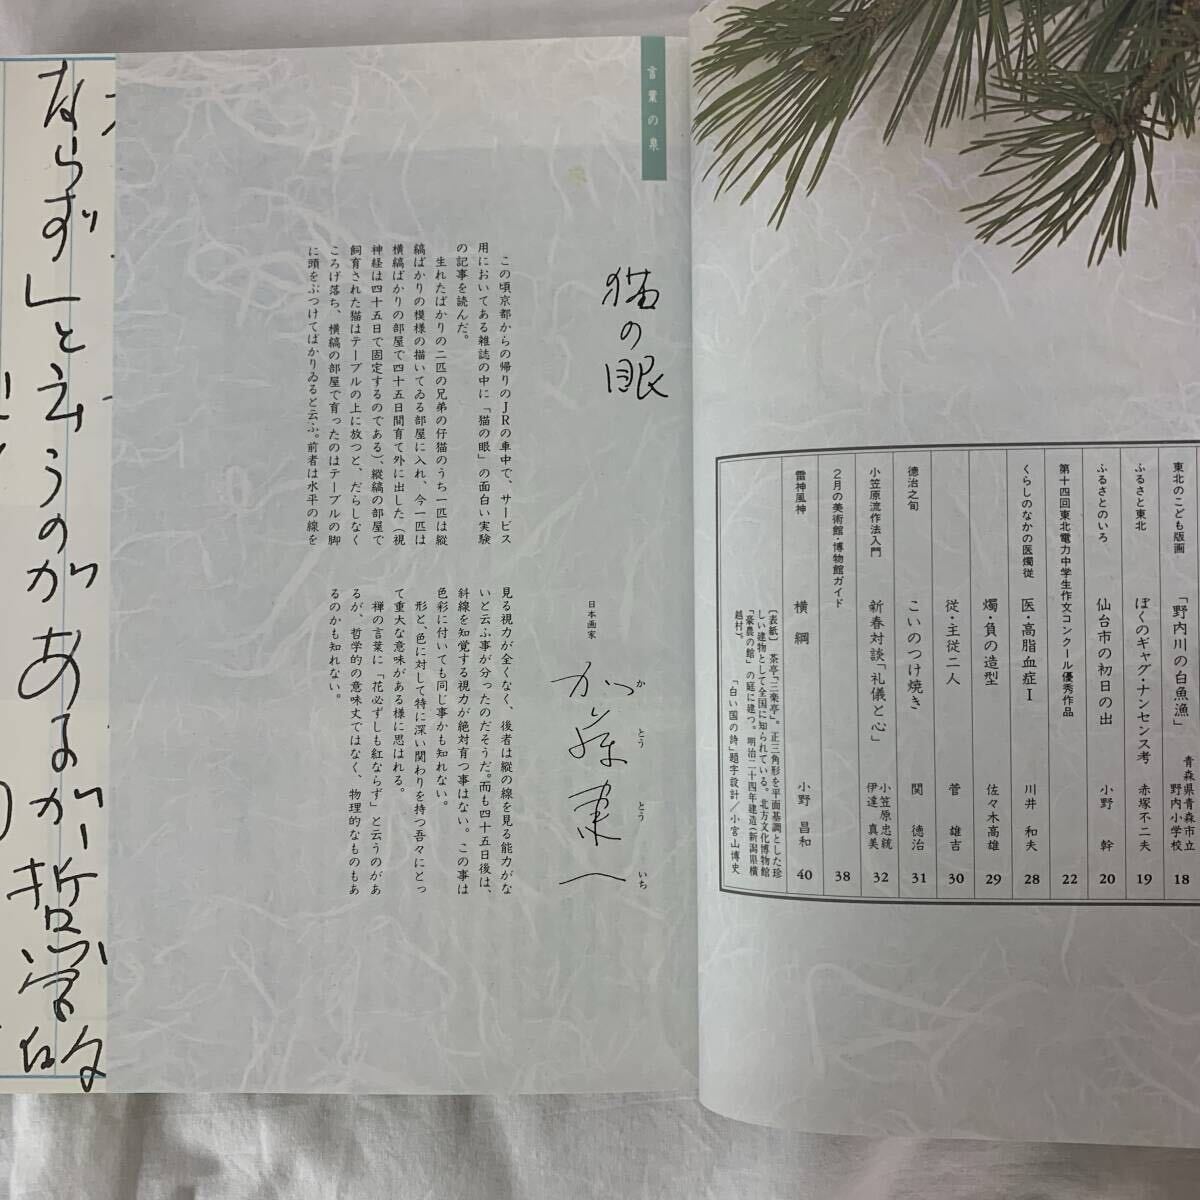 言葉の泉
猫の眼
この頃京都からの帰りのJRの車中で、サービス
用においてある雑誌の中に「猫の眼」の面白い実験
の記事を読んだ。
生れたばかりの二匹の兄弟の仔猫のうち一匹は縦
縞ばかりの模様の描いてゐる部屋に入れ、今一匹は
横縞ばかりの部屋で四十五日間育て外に出した（視
神経は四十五日で固定するのである）、縦縞の部屋で
飼育された猫はテーブルの上に放つと、だらしなく
ころげ落ち、横縞の部屋で育ったのはテーブルの脚
に頭をぶつけてばかりゐると云ふ。前者は水平の線を
日本画家
加藤東一
かとうとういち
見る視力が全くなく、後者は縦の線を見る能力がな
いと云ふ事が分ったのだそうだ。而も四十五日後は、
斜線を知覚する視力が絶対育つ事はない。この事は
色彩に付いても同じ事かも知れない。
形と、色に対して特に深い関わりを持つ吾々にとっ
て重大な意味がある様に思はれる。
禅の言葉に「花必ずしも紅ならず」と云うのがあ
るが、哲学的の意味丈ではなく、物理的なものもあ
るのかも知れない。
ならず」と云うのがあるが哲学的
東北のこども版画 「野内川の白魚漁」 青森県青森市立野内小学校 18
ふるさと東北 ぼくのギャグ・ナンセンス考 赤塚不二夫 19
ふるさとのいろ 仙台市の初日の出 小野 幹 20
第十四回東北電力中学生作文コンクール優秀作品 22
くらしのなかの医燭従 医・高脂血症Ⅰ 川井 和夫 28
燭・負の造型 佐々木高雄 29
従・主従二人 菅 雄吉 30
徳治之旬 こいのつけ焼き 関 徳治 31
小笠原流作法入門 新春対談「礼儀と心」 小笠原忠統 伊達 真美 32
2月の美術館・博物館ガイド 38
雷神風神 横綱 小野 昌和 40
〔表紙〕 茶亭「三楽亭」。正三角形を平面基調とした珍
しい建物として全国に知られている。北方文化博物館
「豪農の館」の庭に建つ。明治二十四年建造（新潟県横
越村）。
「白い国の詩」題字設計／小宮山博史